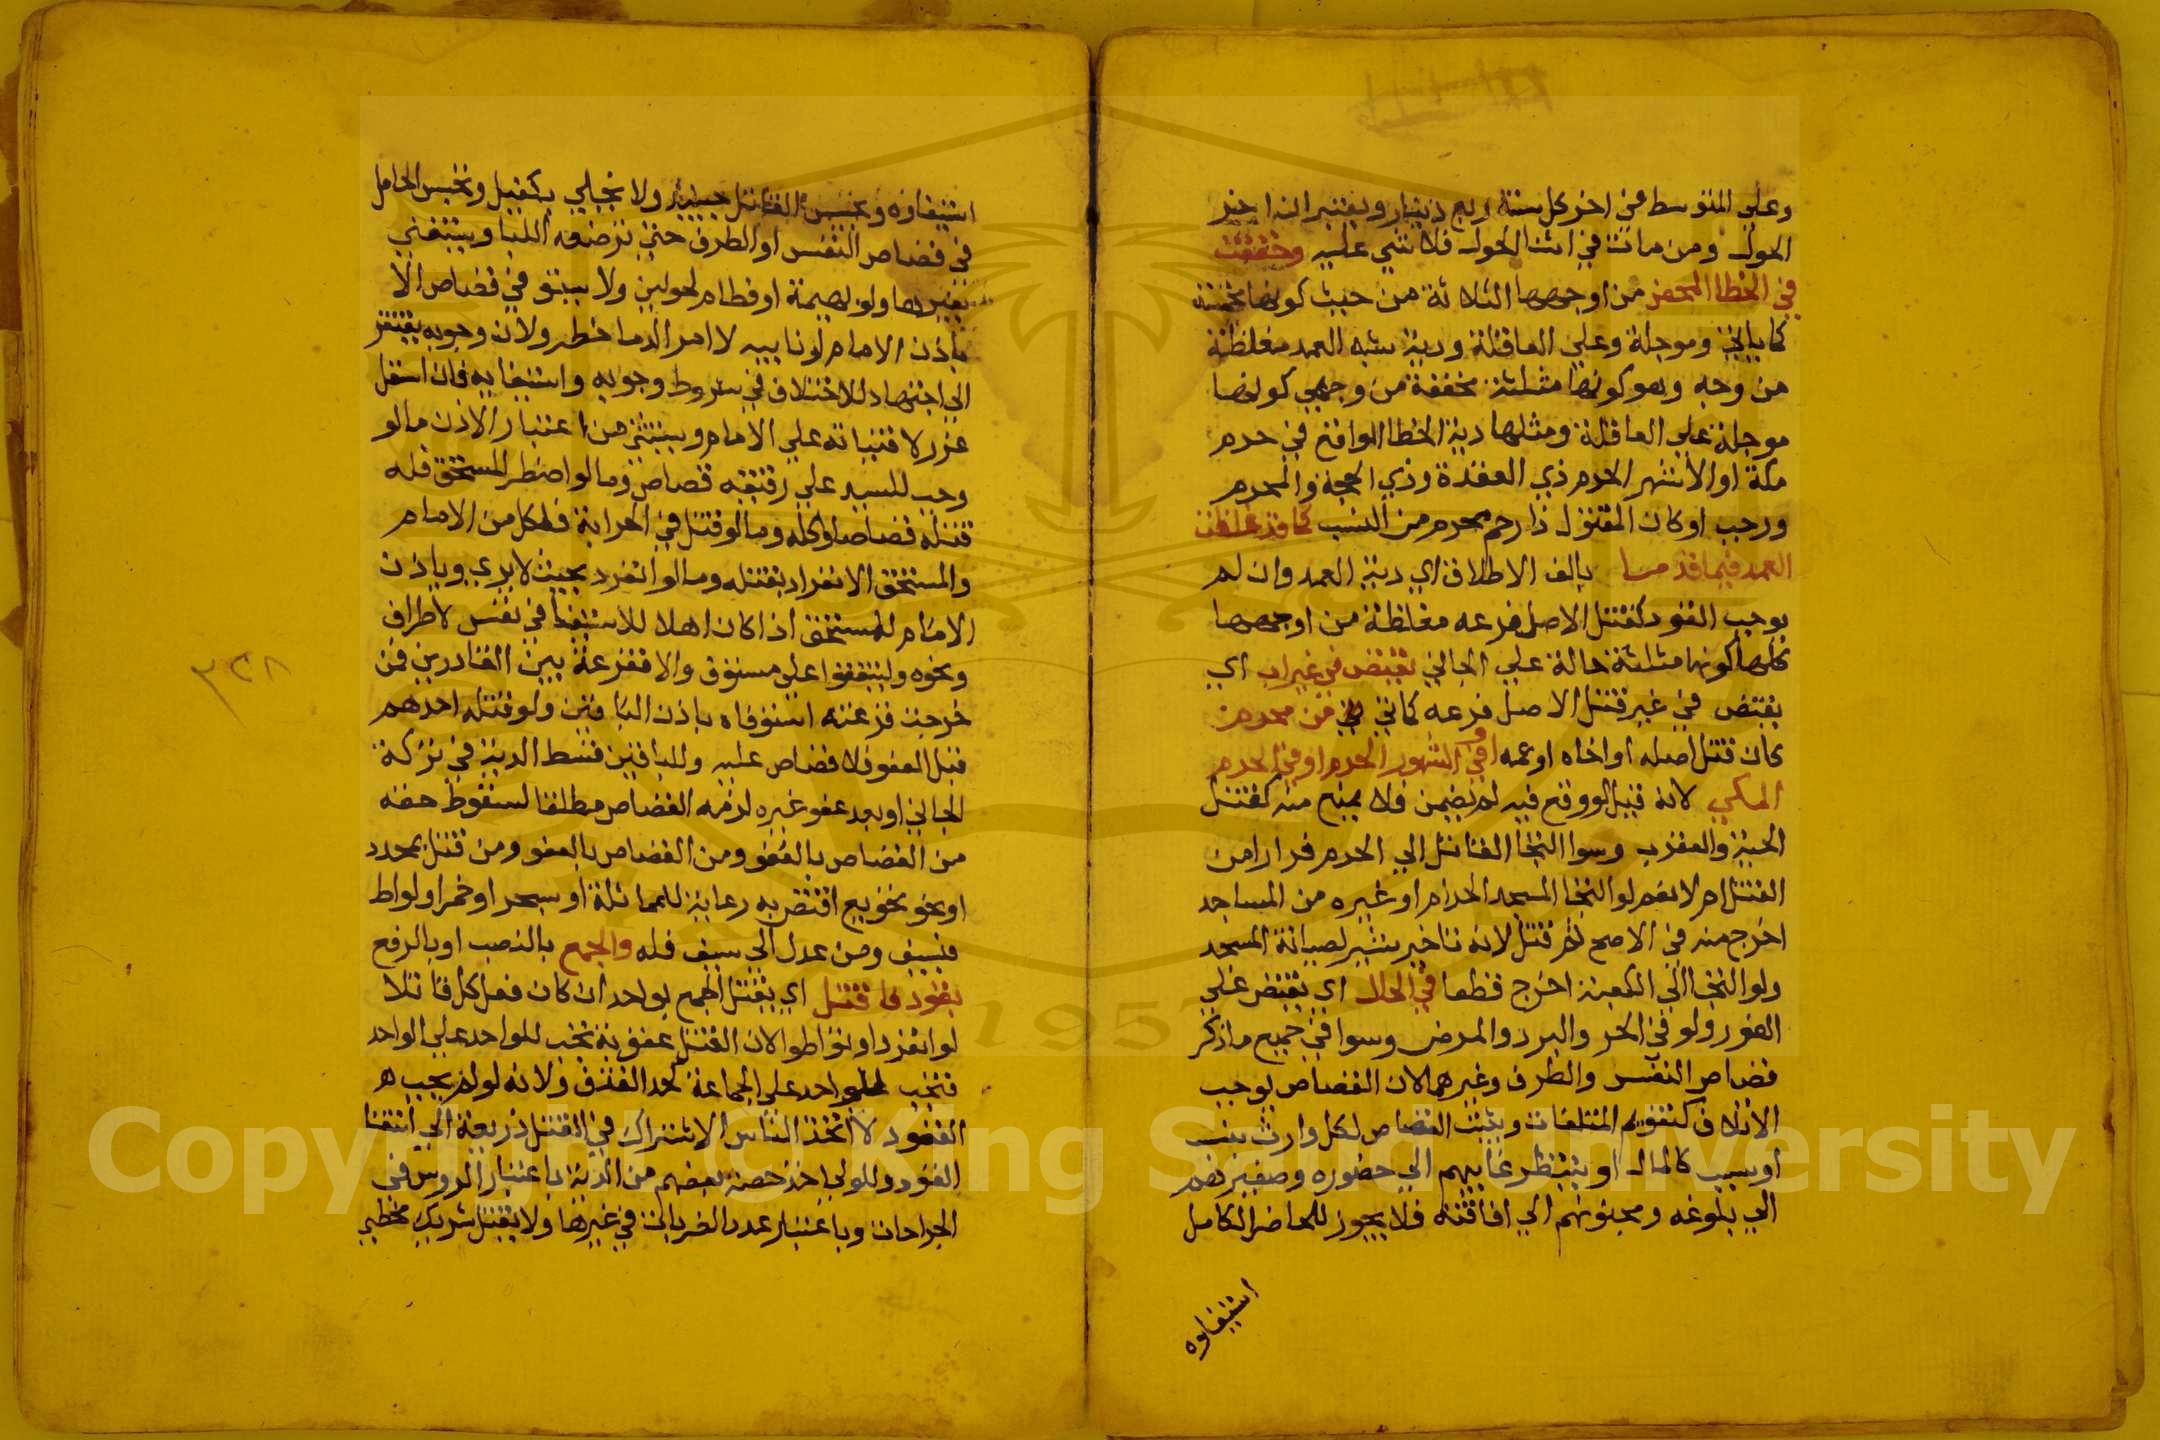 وعلي المتوسط في اخر كل سنة ربع دينار ويعتبران اخر
الحول ومن مات في اثنا الحول فلا شي عليه وخففت
في الخطا المحض من اوجهها الثلاثة من حيث كونها مخمسة
كما ياتي وموجلة وعلي العاقلة ودية شبه العمد مغلظة
من وجه وهو كونها مثلثة مخففة من وجهي كونها
موجلة علي العاقلة ومثلها دية الخطا الواقع في حرم
مكة او الاشهر الحرم ذي القعدة وذي الحجة والمحرم
ورجب او كان المقتول ذا رحم محرم من النسب كما قد غلظت
العمد فيما قدمسا بالف الاطلاق اي دية العمد وان لم
يوجب القود كقتل الاصل فرعه مغلظة من اوجهها
كلها كونها مثلثة حالة علي الجاني يقتص في غير اب اي
يقتص في غير قتل الاصل فرعه كما في من محرم
كان قتل اصله او اخاه او عمه او في الشهور الحرم او في الحرم
المكي لانه قتل لو وقع فيه لم يضمن فلا يمنع منه كقتل
الحية والعقرب وسوا التجا القاتل الي الحرم فرارا من
القتل ام لا نعم لو التجا المسجد الحرام او غيره من المساجد
اخرج منه في الاصح ثم قتل لانه تاخير يسير لصيانة المسجد
ولو التجا الي الكعبة اخرج قطعا في الحال اي يقتص علي
الفور ولو في الحر والبرد والمرض وسوا في جميع ما ذكر
قصاص النفس والطرف وغيرهما لان القصاص لوجب
الاتلاف كتقويم المتلفات ويثبت القصاص لكل وارث بنسب
او سبب كالمال او ينتظر غايبهم الي حضوره وصغيرهم
الي بلوغه ومجنونهم الي افاقته فلا يجوز للحاضر الكامل
استيفاوه
استيفاوه ويحبس القاتل حينئذ ولا يخلي بكفيل وتحبس الحامل
في قصاص النفس او الطرف حتي ترضعه اللبا ويستغني
بغيرها ولو بهيمة او فطام لحولين ولا يستوفي قصاص الا
باذن الامام او نايبه لا امر الدما خطر ولان وجوبه يفتقر
الي اجتهاد للاختلاف في شروط وجوبه واستيفايه فان استقل
عزر لافتياته علي الامام ويستثني من اعتبار الاذن ما لو
وجب للسيد علي رقيقه قصاص وما لو اضطر المستحق فله
قتله قصاصا واكله وما لو قتل في الحرابة فلكل من الامام
والمستحق الانفراد بقتله وما لو انفرد بحيث لا يري وياذن
الامام لمستحق اذا كان اهلا للاستيفا في نفس لا طراف
ونحوه وليتفقوا علي مستوف والا فقرعة بين القادرين فمن
خرجت قرعته استوفاه باذن الباقين ولو قتله احدهم
قبل العفو فلا قصاص عليه وللباقين قسط الدية في تركة
الجاني او بعد عفو غيره لزمه القصاص مطلقا لسقوط حقه
من القصاص بالعفو ومن القصاص بالعفو ومن قتل بمحدد
او نحو تجويع اقتص به رعاية للمماثلة او سحر او خمر او لواط
فبسيف ومن عدل الي سيف فله والجمع بالنصب او بالرفع
بفرد فاقتل اي يقتل الجمع بواحد ان كان فعل كل قاتلا
لو انفرد او تواطوا لان القتل عقوبة تجب للواحد علي الواحد
فتجب للواحد علي الجماعة كحد القذف ولانه لو لم يجب هر
القود لاتخذ الناس الاشتراك في القتل ذريعة الي انتفا
القود وللولي اخذ حصة بعضهم من الدية باعتبار الروس في
الجراحات وباعتبار عدد الضربات في غيرها ولا يقتل شريك مخطي
٣٣٨
Copyright © King Saud University
1957